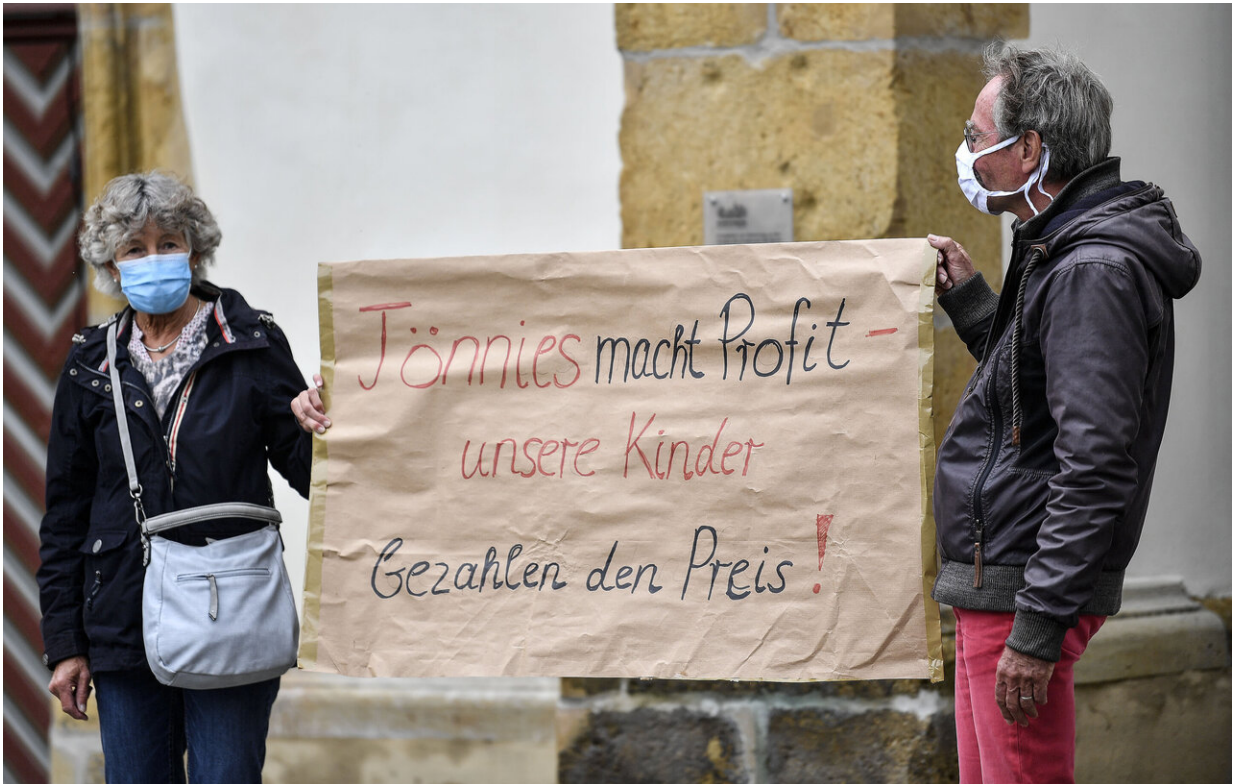 Tönnies macht Profit -
unsere Kinder
Gezahlen den Preis!